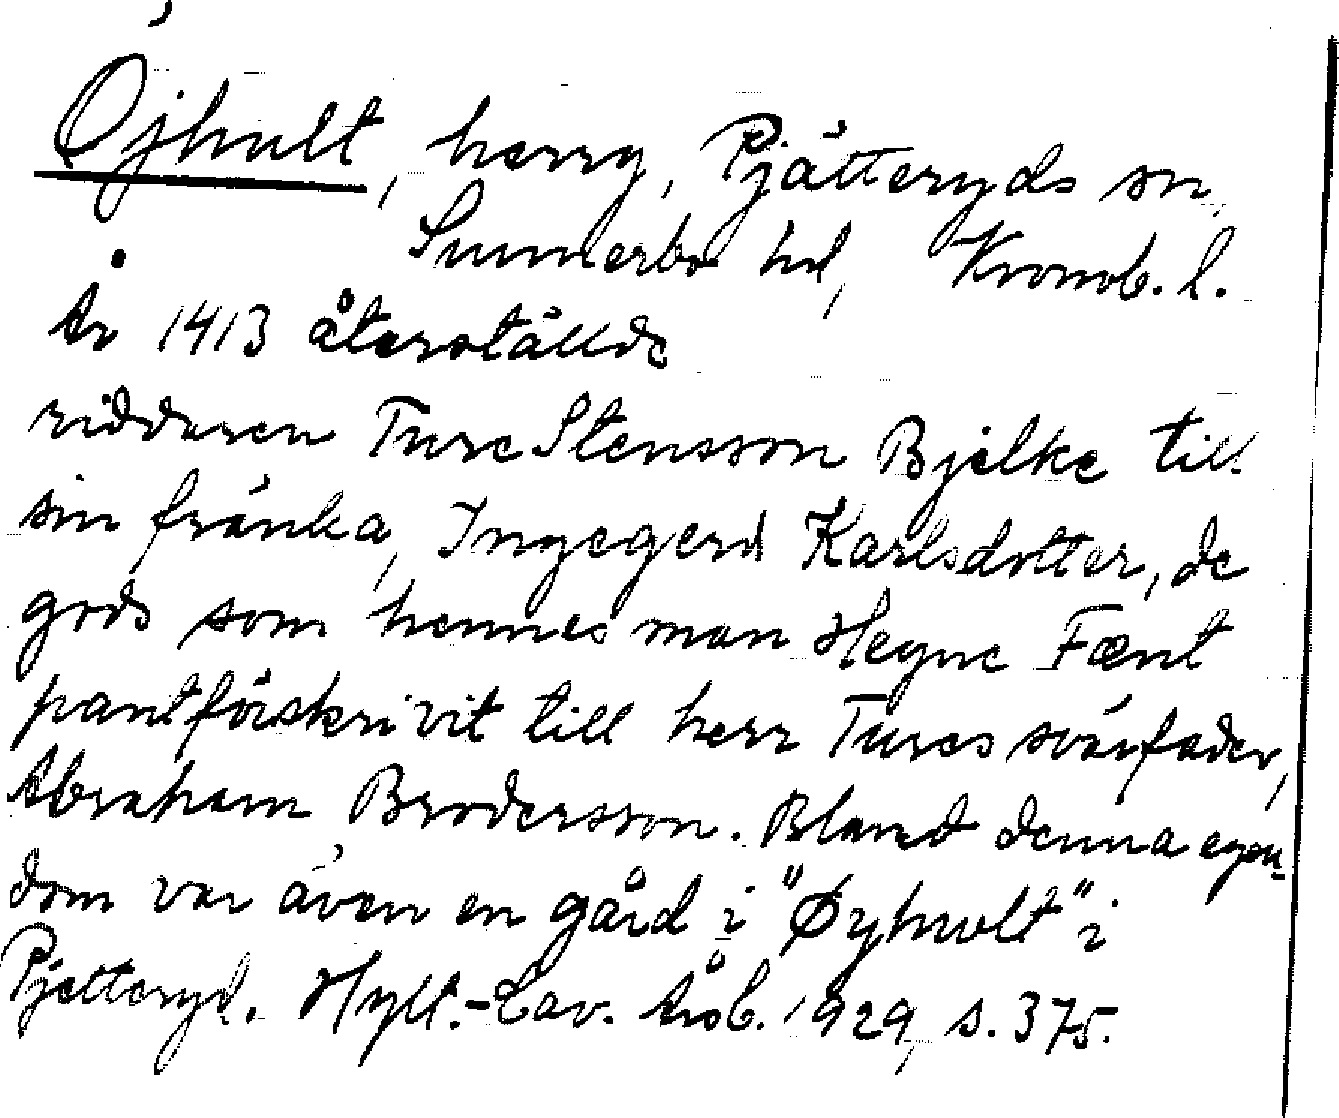 Öjhult, herrg, Pjätteryds sn,
Sunnerbo hd, Kronob. l.
År 1413 återställde
riddaren Ture Stensson Bjelke till
sin fränka, Ingegerd Karlsdotter, de
gods som hennes man Hegne Fænt
pantförskrivit till herr Tures svärfader,
Abraham Brodersson. Bland denna egen-
dom var även en gård i "Øyhwlt" i
Pjetteryd. Hylt.-Cav. Årsb. 1929, s. 375.